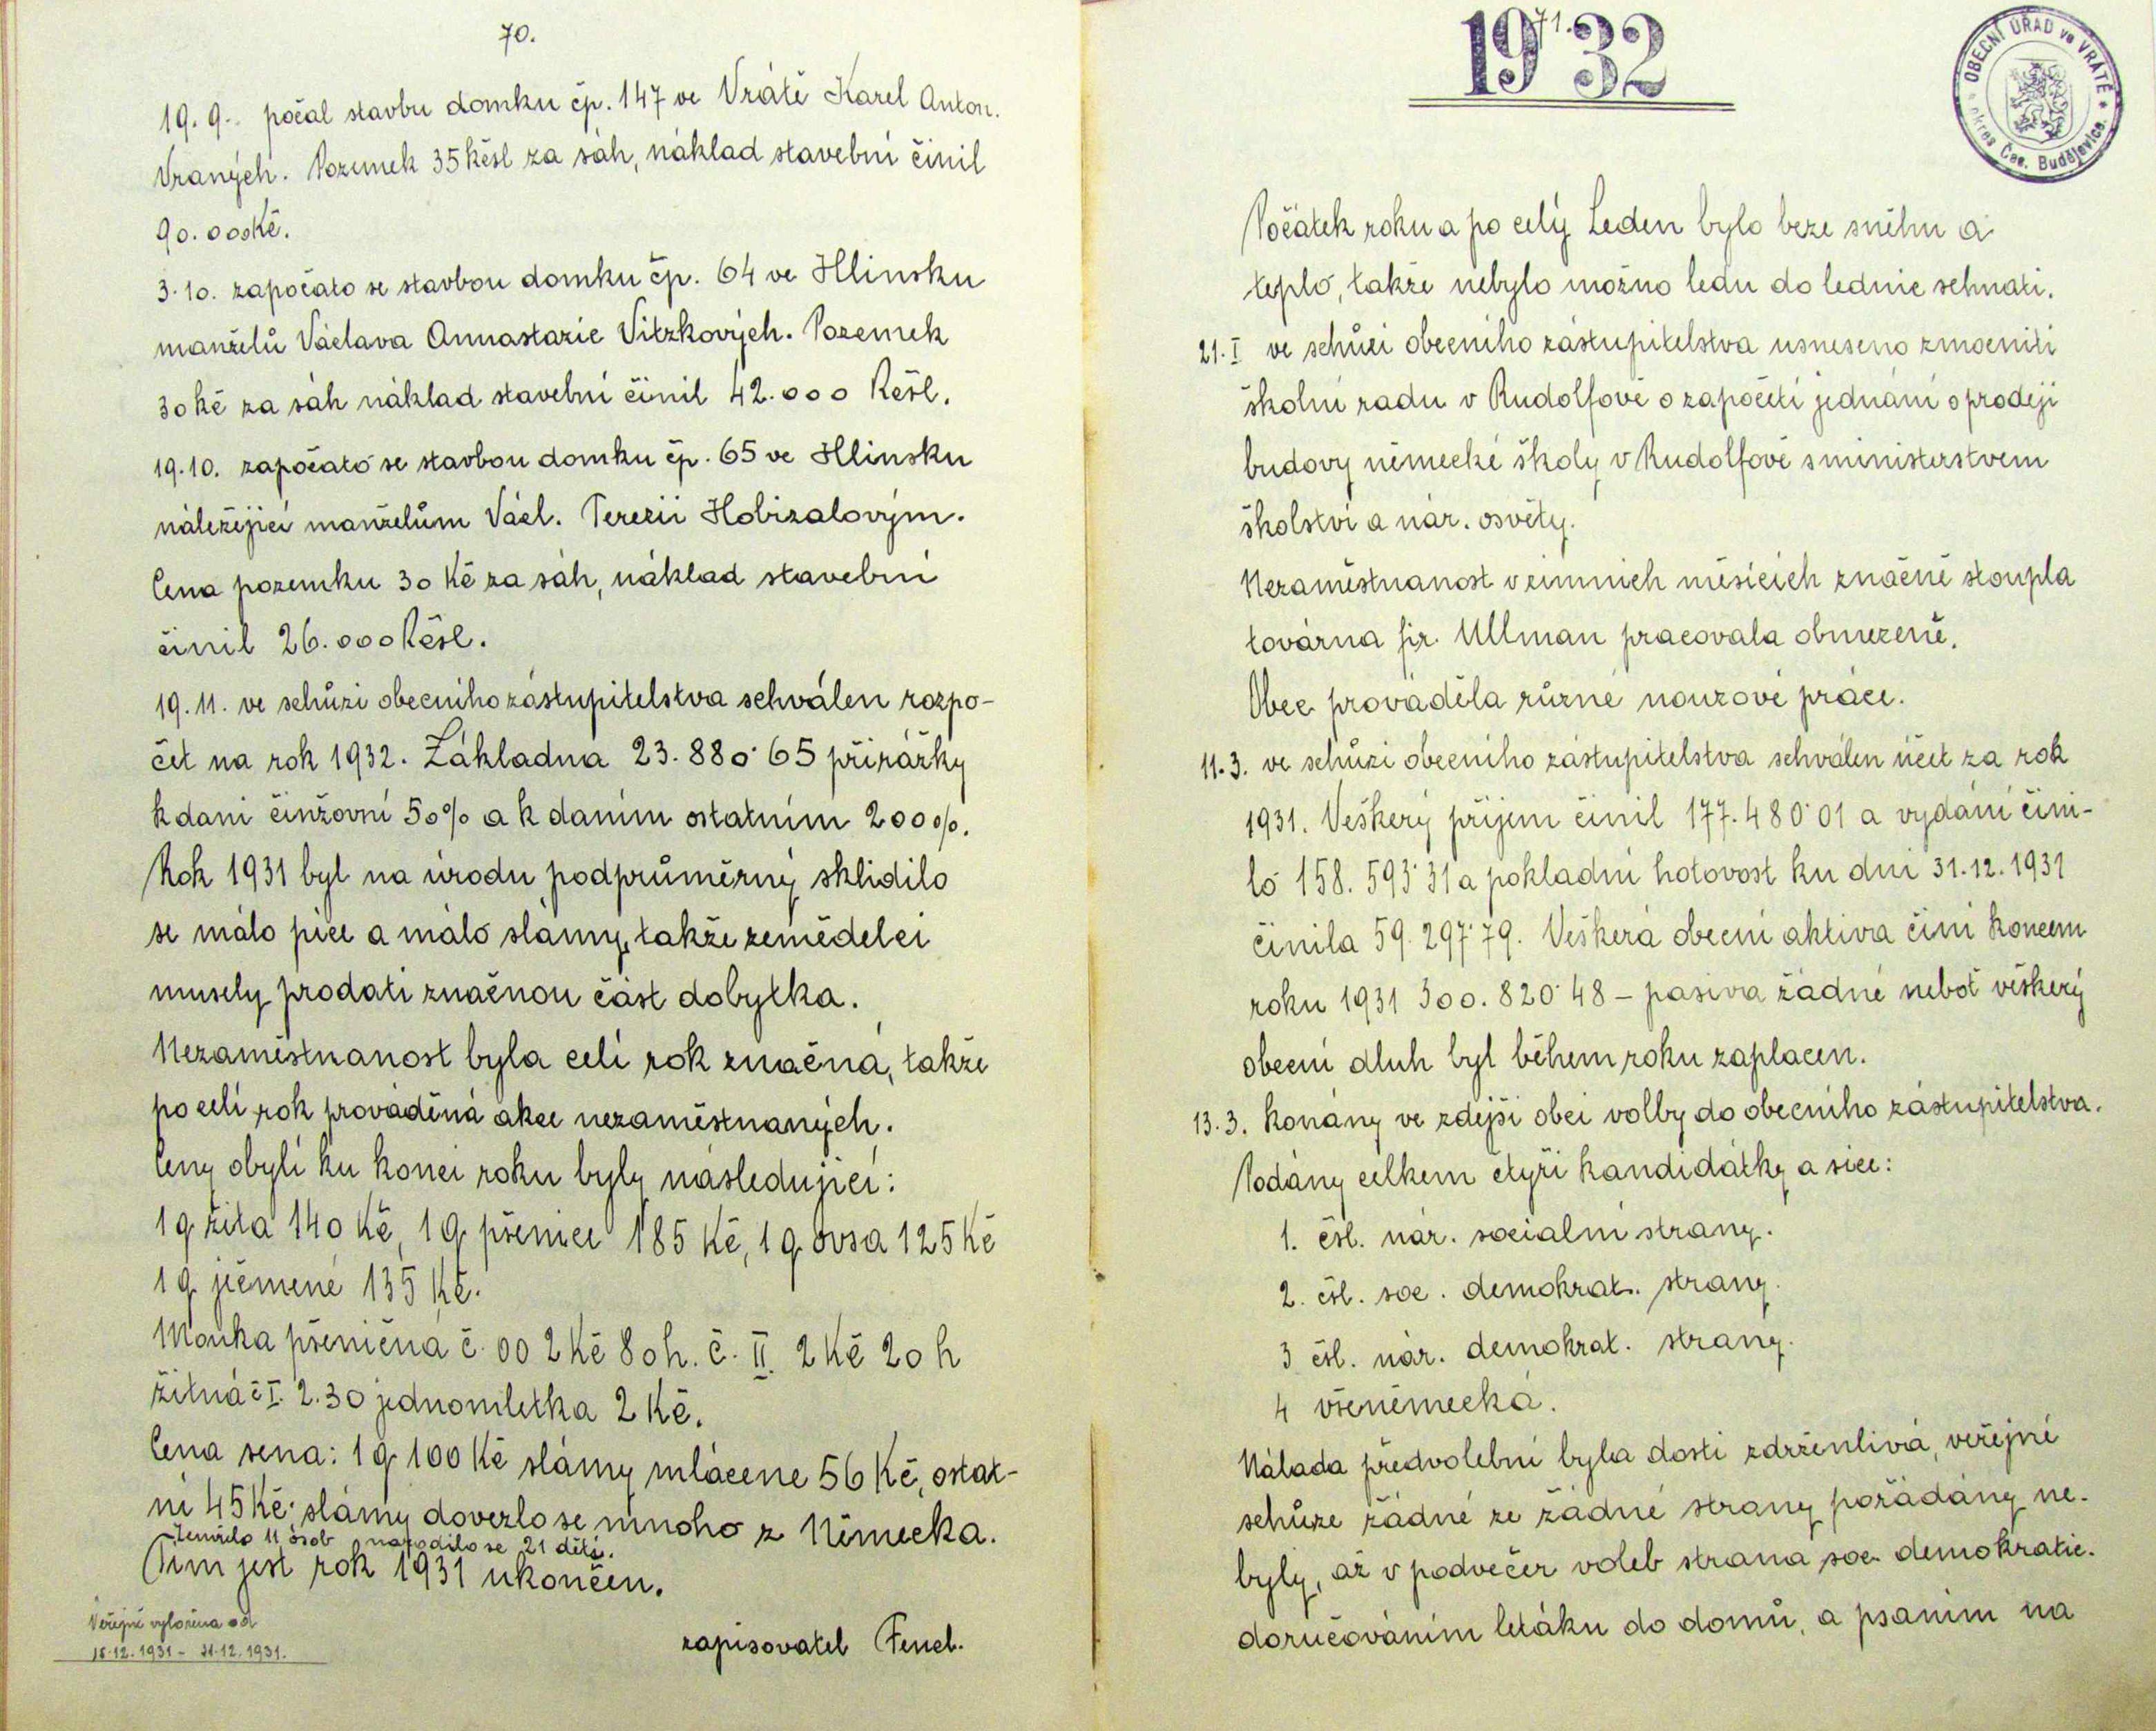 70.
19. 9. počal stavbu domku čp. 147 ve Vrátě Karel Anton.
Vraných. Pozemek 35 kčsl za sáh, náklad stavební činil
90.000 Kč.
3.10. započato se stavbou domku čp. 64 ve Hlinsku
manželů Václava Annastazie Vitzkových. Pozemek
30 kč za sáh náklad stavební činil 42.000 Kčsl.
19.10. započato se stavbou domku čp. 65 ve Hlinsku
náležející manželům Václ. Terezii Hobizalovým.
Cena pozemku 30 Kč za sáh, náklad stavební
činil 26.000 Kčsl.
19.11. ve schůzi obecního zástupitelstva schválen rozpo-
čet na rok 1932. Základna 23.880·65 přirážky
k dani činžovní 50% a k daním ostatním 200%.
Rok 1931 byl na úrodu podprůměrný sklidilo
se málo píce a málo slámy, takže zemědelci
musely prodati značnou část dobytka.
Nezaměstnanost byla celí rok značná, takže
po celí rok prováděná akce nezaměstnaných.
Ceny obylí ku konci roku byly následující:
1 q žita 140 Kč, 1 q pšenice 185 Kč, 1 q ovsa 125 Kč
1 q ječmene 135 Kč.
Mouka pšeničná č. 00 2 Kč 80 h. č. II. 2 Kč 20 h
žitná č I. 2.30 jednomletka 2 Kč.
Cena sena: 1 q 100 Kč slámy mlácene 56 Kč, ostat-
ní 45 Kč. slámy dovezlo se mnoho z Německa.
Zemřelo 11 osob narodilo se 21 dětí.
Tím jest rok 1931 ukončen.
Veřejně vyložena od
15.12.1931 - 31.12.1931.
zapisovatel Fencl.
71.
1932
OBECNÍ ÚŘAD ve VRÁTĚ
okres Čes. Budějovice
Počátek roku a po celý Leden bylo beze sněhu a
teplo, takže nebylo možno ledu do lednic sehnati.
21. I ve schůzi obecního zástupitelstva usneseno zmocniti
školní radu v Rudolfově o započetí jednání o prodeji
budovy německé školy v Rudolfově s ministerstvem
školství a nár. osvěty.
Nezaměstnanost v zimních měsících značně stoupla
továrna fir. Ullman pracovala obmezeně.
Obec prováděla různé nouzové práce.
11.3. ve schůzi obecního zástupitelstva schválen účet za rok
1931. Veškerý příjem činil 177.480·01 a vydání čini-
lo 158.593·31 a pokladní hotovost ku dni 31.12.1931
činila 59.297·79. Veškerá obecní aktiva činí koncem
roku 1931 300.820·48 – pasiva žádné neboť veškerý
obecní dluh byl během roku zaplacen.
13.3. konány ve zdejší obci volby do obecního zástupitelstva.
Podány celkem čtyři kandidátky a sice:
1. čsl. nár. socialní strany.
2. čsl. soc. demokrat. strany.
3 čsl. nár. demokrat. strany.
4 všeněmecká.
Nálada předvolební byla dosti zdrženlivá, veřejné
schůze žádné ze žádné strany pořádány ne-
byly, až v podvečer voleb strana soc demokratic.
doručováním letáku do domů, a psaním na